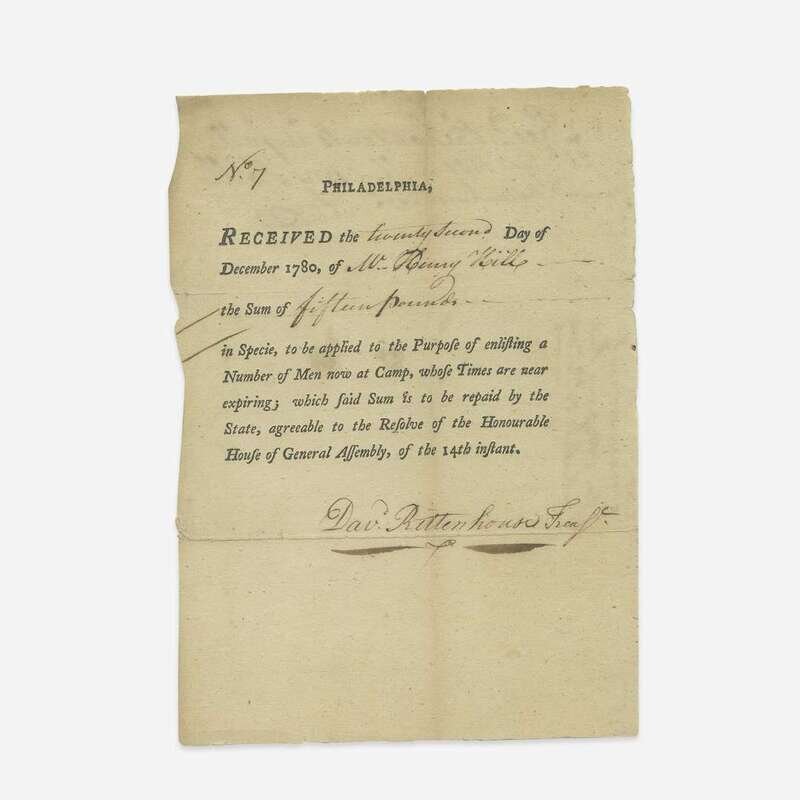 No. 7
PHILADELPHIA,
RECEIVED the twenty second Day of
December 1780, of Mr. Henry Hill
the Sum of fifteen pounds
in Specie, to be applied to the Purpose of enliſting a
Number of Men now at Camp, whoſe Times are near
expiring; which ſaid Sum is to be repaid by the
State, agreeable to the Reſolve of the Honourable
Houſe of General Aſſembly, of the 14th inſtant.
Davd. Rittenhouse Treaſr.